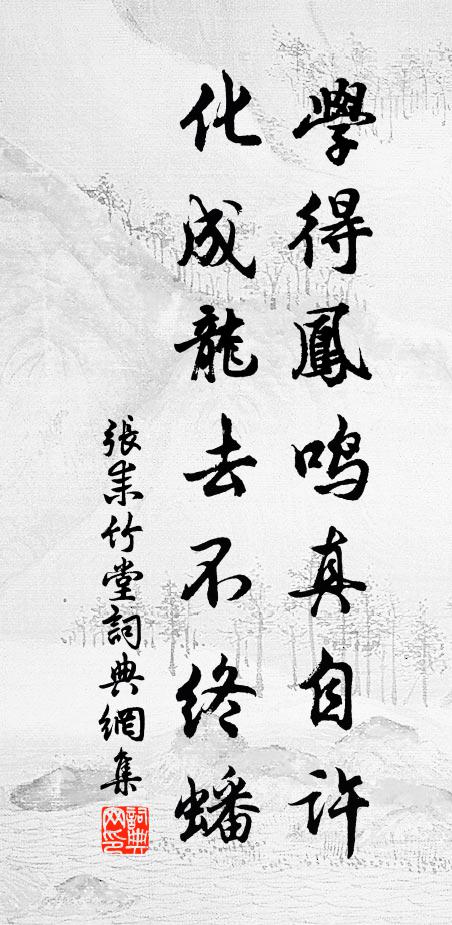 學得鳳鳴真自許
化成龍去不終蟠
張耒竹堂詞典網集
詞典網印